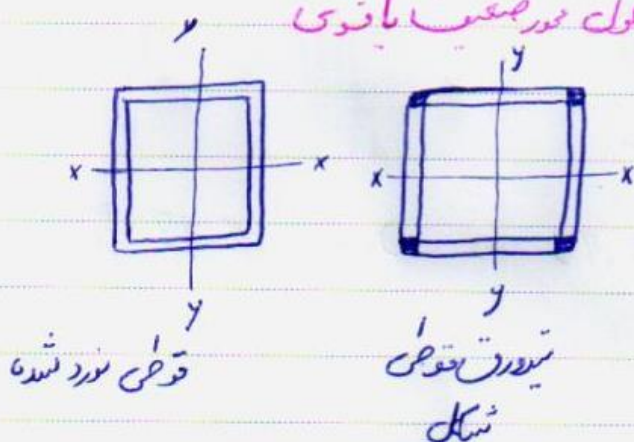 حول محور ضعیف یا قوی
y y
x x x x
y y
قوطی نورد شده تیرورق قوطی
شکل